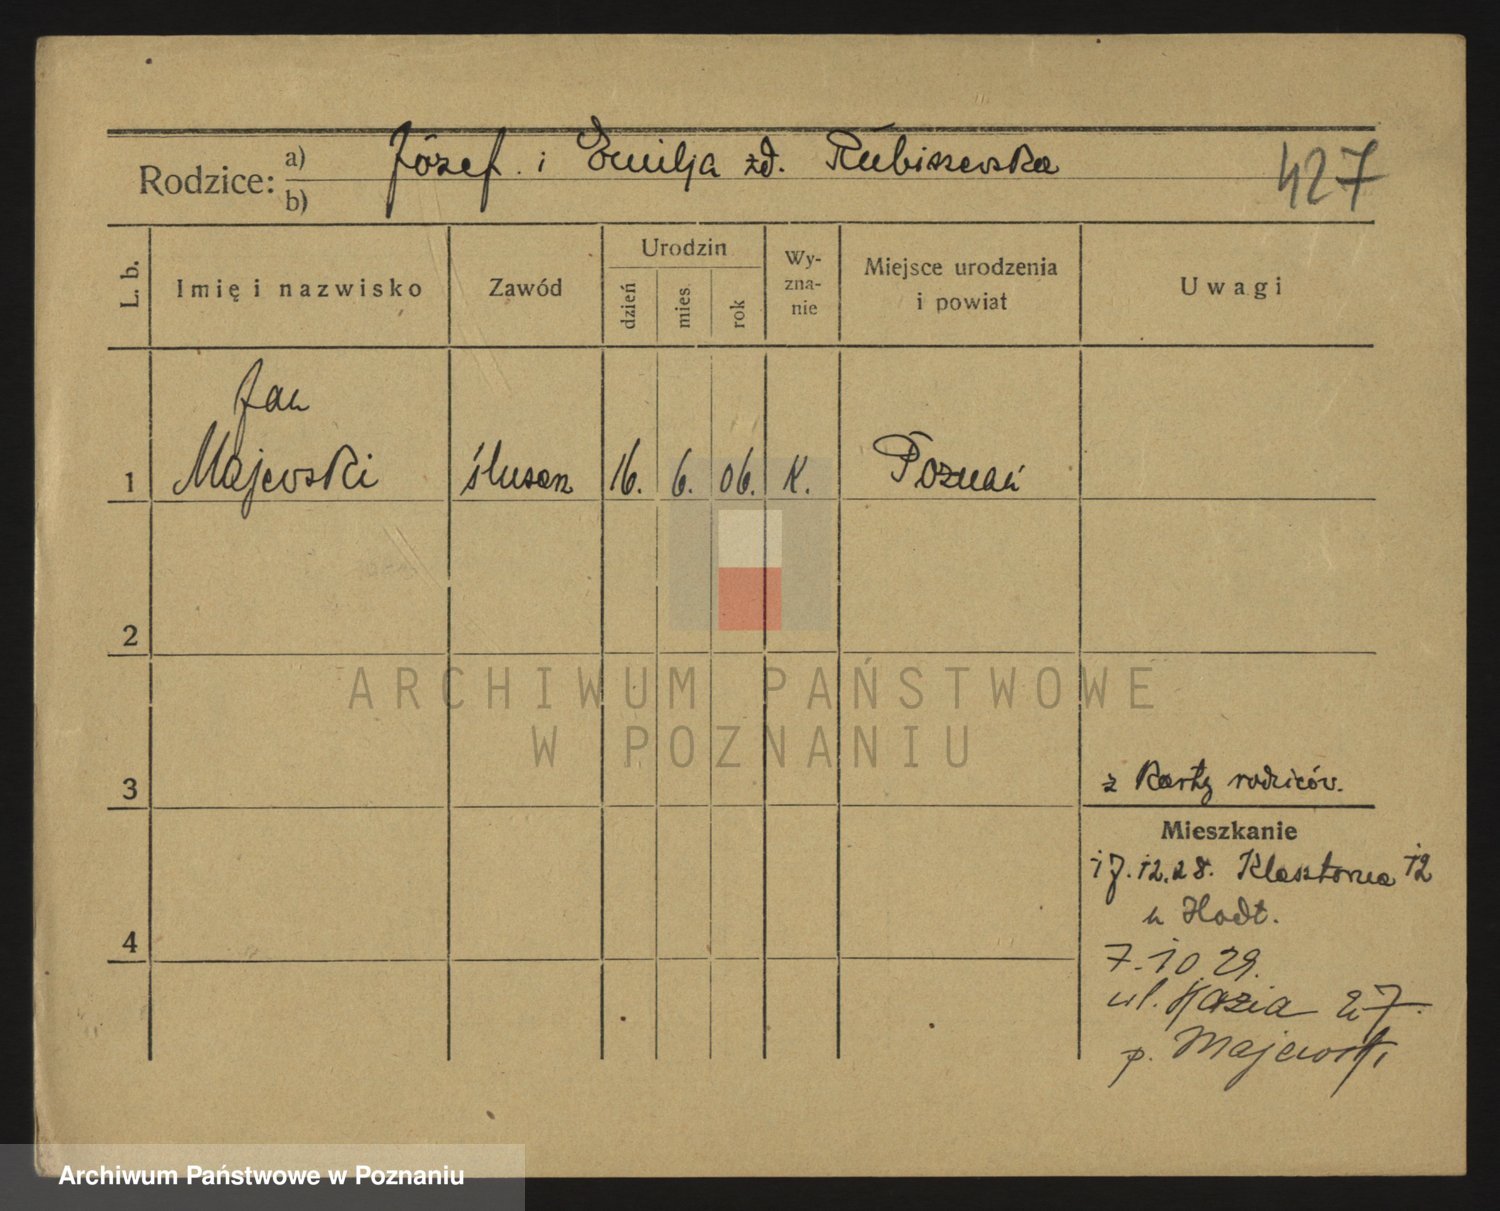 Rodzice: a) Józef i Emilja zd. Rubiszewska
b)
427
L. b.
Imię i nazwisko
Zawód
Urodzin
dzień
mies
rok
Wy-
zna-
nie
Miejsce urodzenia
i powiat
Uwagi
Jan
1 Majewski ślusarz 16. 6. 06. K. Poznań
2
ARCHIWUM PAŃSTWOWE
W POZNANIU
3
z karty rodziców.
Mieszkanie
17.12.28. Klasztorna 12
u Hodt.
4
7.10 29.
ul. 27.
p. Majewski
Archiwum Państwowe w Poznaniu